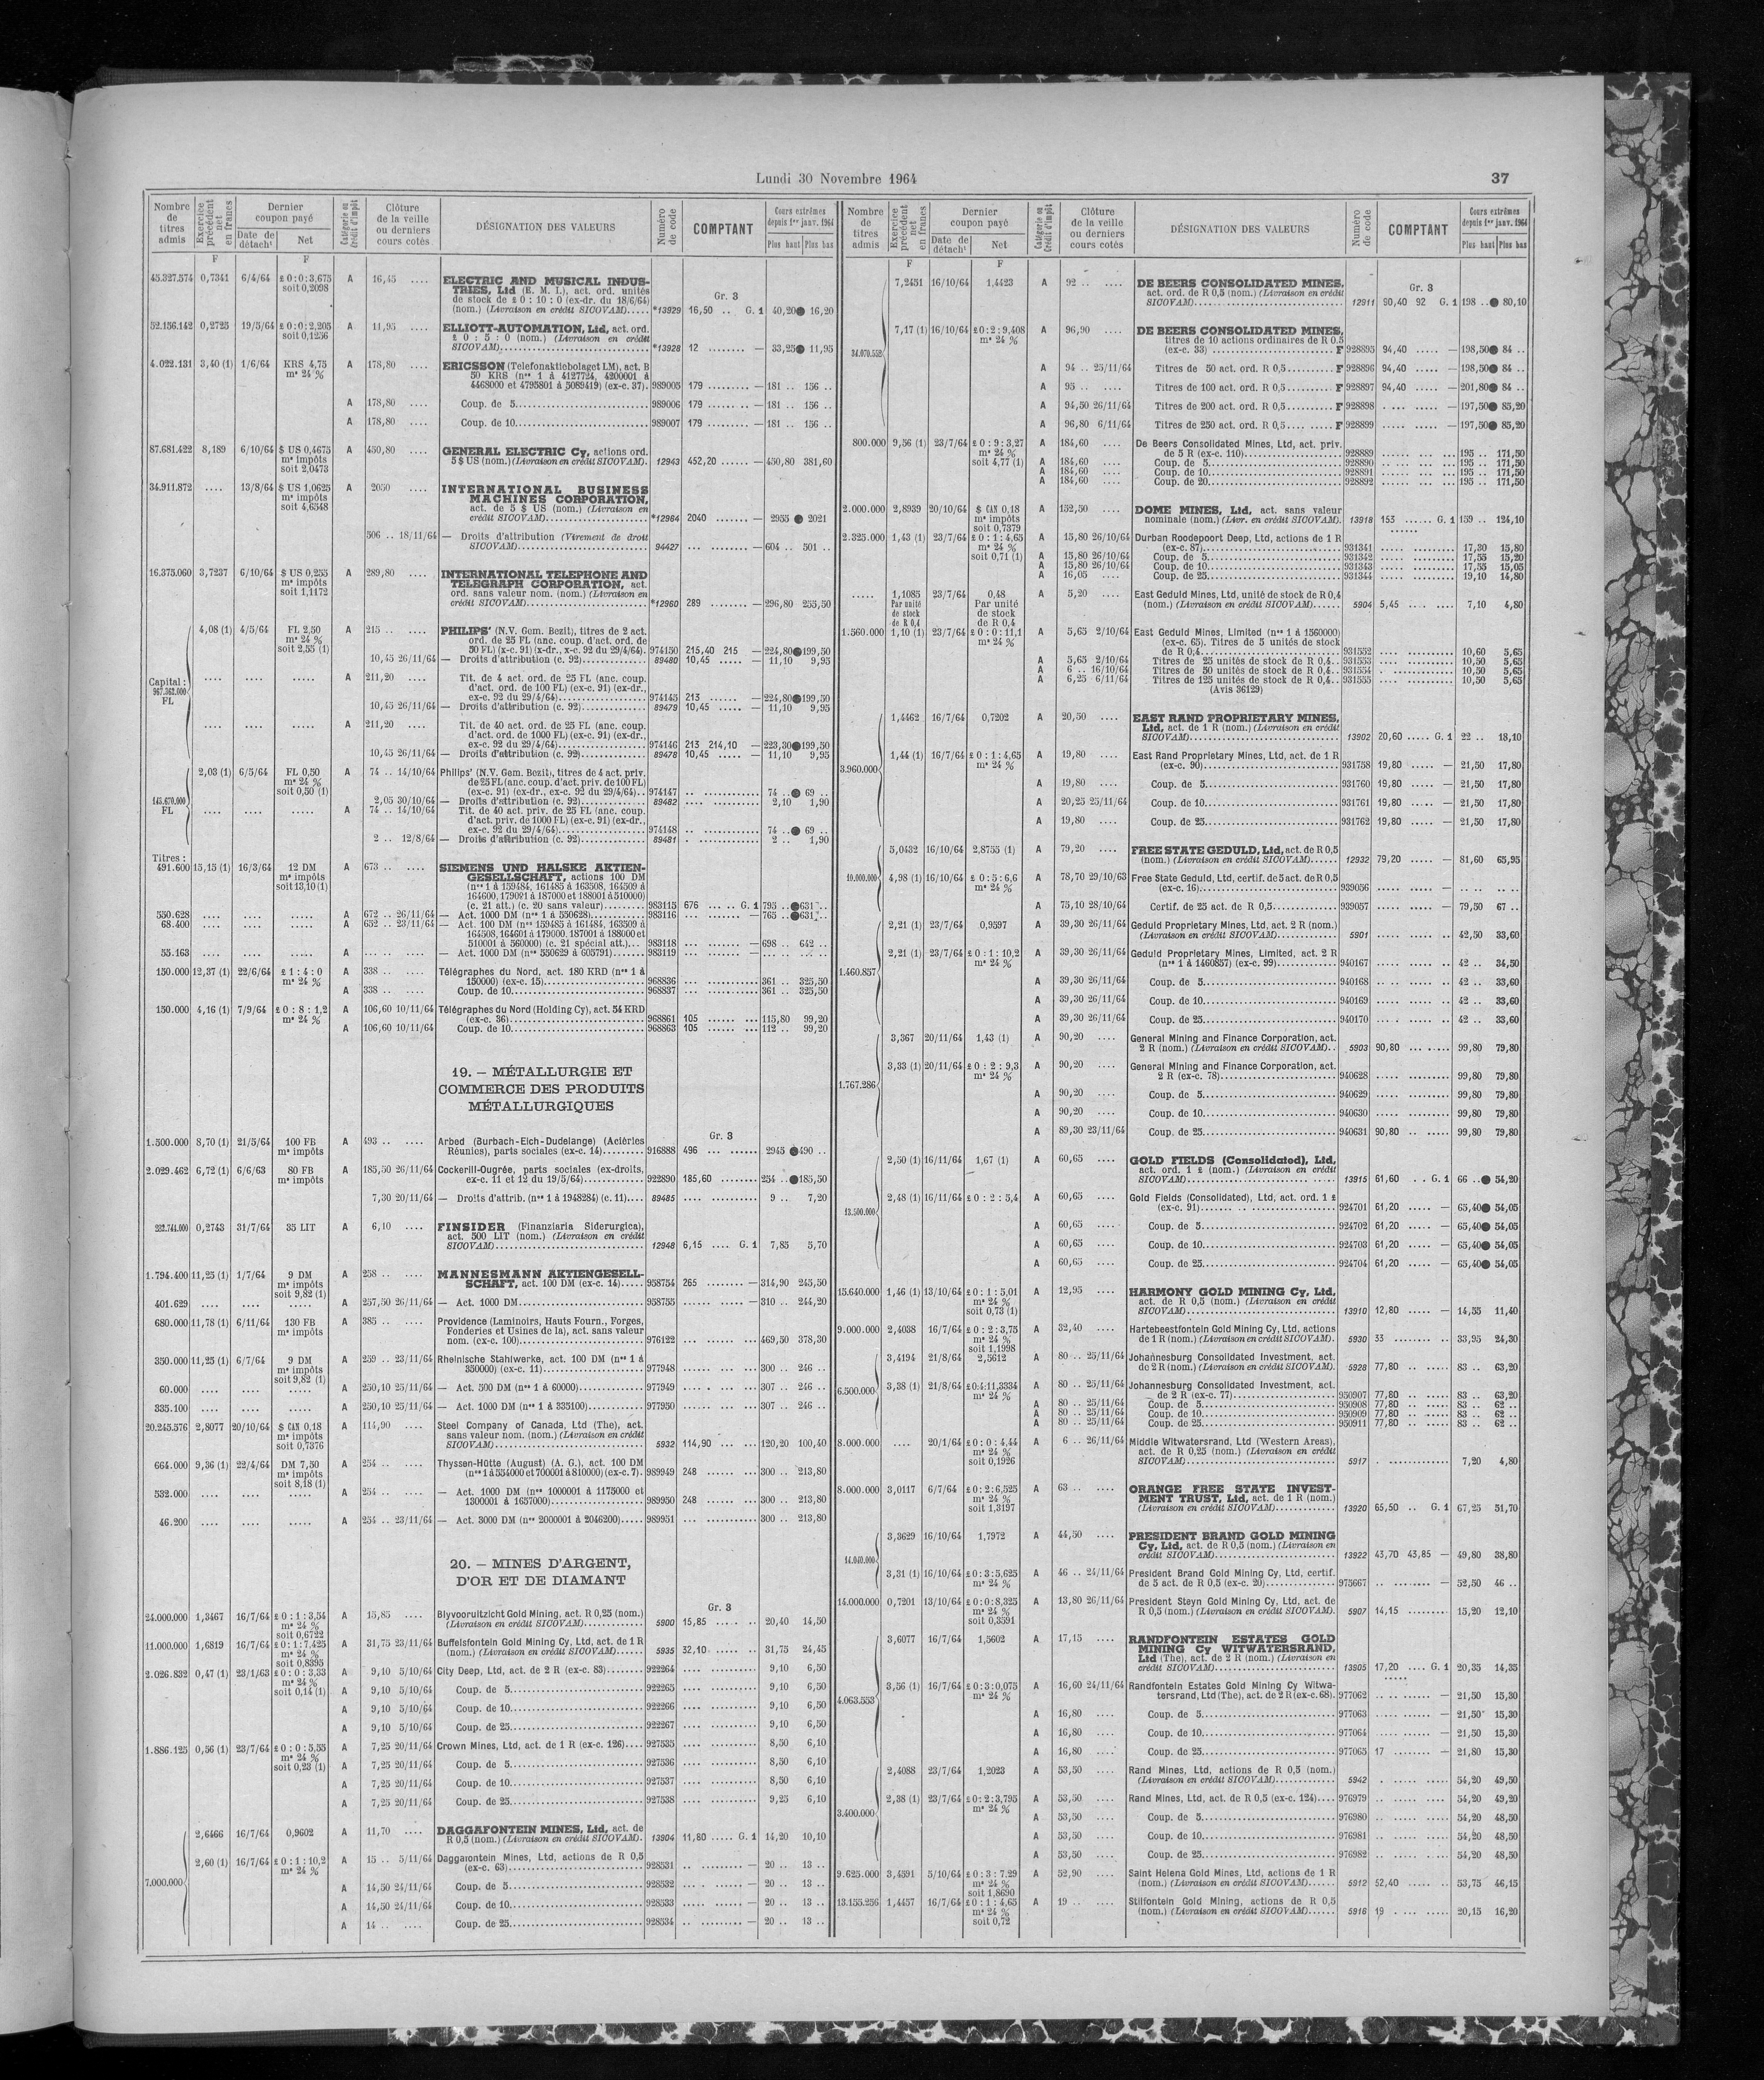 Lundi 30 Novembre 1964
37
Nombre de titres admis
Exercice précédent net en francs
Dernier coupon payé
Date de détacht
Net
Catégorie ou Crédit d'impôt
Clôture de la veille ou derniers cours cotés
DÉSIGNATION DES VALEURS
Numéro de code
COMPTANT
Cours extrêmes depuis 1er janv. 1964
Plus haut Plus bas
F F
45.327.574 0,7341 6/4/64 £0:0:3,675 A 16,45 .... ELECTRIC AND MUSICAL INDUS-
soit 0,2098 TRIES, Ltd (E. M. I.), act. ord. unités
de stock de £ 0 : 10 : 0 (ex-dr. du 18/6/64) Gr. 3
(nom.) (Livraison en crédit SICOVAM)..... *13929 16,50 .. G. 1 40,20● 16,20
52.156.142 0,2725 19/5/64 £0:0:2,205 A 11,95 .... ELLIOTT-AUTOMATION, Ltd, act. ord.
soit 0,1256 £ 0 : 5 : 0 (nom.) (Livraison en crédit
SICOVAM) *13928 12 ........ — 33,25● 11,95
4.022.131 3,40 (1) 1/6/64 KRS 4,75 A 178,80 .... ERICSSON (Telefonaktiebolaget LM), act. B
mˢ 24 % 50 KRS (nᵒˢ 1 à 4127724, 4200001 à
4468000 et 4795801 à 5089419) (ex-c. 37). 989005 179 ........ — 181 .. 156 ..
A 178,80 .... Coup. de 5 989006 179 ........ — 181 .. 156 ..
A 178,80 .... Coup. de 10 989007 179 ........ — 181 .. 156 ..
87.681.422 8,189 6/10/64 $ US 0,4675 A 450,80 .... GENERAL ELECTRIC Cy, actions ord.
mˢ impôts 5 $ US (nom.) (Livraison en crédit SICOVAM). 12943 452,20 ...... — 450,80 381,60
soit 2,0473
34.911.872 .... 13/8/64 $ US 1,0625 A 2050 .... INTERNATIONAL BUSINESS
mˢ impôts MACHINES CORPORATION,
soit 4,6548 act. de 5 $ US (nom.) (Livraison en
crédit SICOVAM) *12964 2040 ....... — 2955 ● 2021
506 .. 18/11/64 — Droits d'attribution (Virement de droit
SICOVAM) 94427 ... ........ — 604 .. 501 ..
16.375.060 3,7237 6/10/64 $ US 0,255 A 289,80 .... INTERNATIONAL TELEPHONE AND
mˢ impôts TELEGRAPH CORPORATION, act.
soit 1,1172 ord. sans valeur nom. (nom.) (Livraison en
crédit SICOVAM) *12960 289 ........ — 296,80 255,50
4,08 (1) 4/5/64 FL 2,50 A 215 .. .... PHILIPS' (N.V. Gem. Bezit), titres de 2 act.
mˢ 24 % ord. de 25 FL (anc. coup. d'act. ord. de
soit 2,55 (1) 50 FL) (x-c. 91) (x-dr., x-c. 92 du 29/4/64). 974150 215,40 215 — 224,80●199,50
10,45 26/11/64 — Droits d'attribution (c. 92) 89480 10,45 ..... — 11,10 9,95
Capital : 967.362.000 FL
.... .... ..... A 211,20 .... Tit. de 4 act. ord. de 25 FL (anc. coup.
d'act. ord. de 100 FL) (ex-c. 91) (ex-dr.,
ex-c. 92 du 29/4/64) 974145 213 ...... — 224,80●199,50
10,45 26/11/64 — Droits d'attribution (c. 92) 89479 10,45 ..... — 11,10 9,95
.... .... ..... A 211,20 .... Tit. de 40 act. ord. de 25 FL (anc. coup.
d'act. ord. de 1000 FL) (ex-c. 91) (ex-dr.,
ex-c. 92 du 29/4/64) 974146 213 214,10 — 223,30●199,50
10,45 26/11/64 — Droits d'attribution (c. 92) 89478 10,45 ..... — 11,10 9,95
2,03 (1) 6/5/64 FL 0,50 A 74 .. 14/10/64 Philips' (N.V. Gem. Bezit), titres de 4 act. priv.
mˢ 24 % de 25 FL (anc. coup. d'act. priv. de 100 FL)
soit 0,50 (1) (ex-c. 91) (ex-dr., ex-c. 92 du 29/4/64).. 974147 .. ............ 74 ..● 69 ..
FL 2,05 30/10/64 — Droits d'attribution (c. 92) 89482 .... ........... 2,10 1,90
.... .... ..... A 74 .. 14/10/64 Tit. de 40 act. priv. de 25 FL (anc. coup.
d'act. priv. de 1000 FL) (ex-c. 91) (ex-dr.,
ex-c. 92 du 29/4/64) 974148 .. ............ 74 ..● 69 ..
2 .. 12/8/64 — Droits d'attribution (c. 92) 89481 . ............ 2 .. 1,90
Titres :
491.600 15,15 (1) 16/3/64 12 DM A 673 .. .... SIEMENS UND HALSKE AKTIEN-
mˢ impôts GESELLSCHAFT, actions 100 DM
soit 13,10 (1) (nᵒˢ 1 à 159484, 161485 à 163508, 164509 à
164600, 179001 à 187000 et 188001 à 510000)
(c. 21 att.) (c. 20 sans valeur) 983115 676 ... .. G. 1 795 ..●631 ..
550.628 .... .... ..... A 672 .. 26/11/64 — Act. 1000 DM (nᵒˢ 1 à 550628) 983116 ... ....... — 765 ..●631 ..
68.400 .... .... ..... A 652 .. 23/11/64 — Act. 100 DM (nᵒˢ 159485 à 161484, 163509 à
164508, 164601 à 179000, 187001 à 188000 et
510001 à 560000) (c. 21 spécial att.)... 983118 ... ....... — 698 .. 642 ..
55.163 .... .... ..... A ... .. .... — Act. 1000 DM (nᵒˢ 550629 à 605791) 983119 ... ....... — ... .. ... ..
150.000 12,37 (1) 22/6/64 £ 1 : 4 : 0 A 338 .. .... Télégraphes du Nord, act. 180 KRD (nᵒˢ 1 à
mˢ 24 % 150000) (ex-c. 15) 968836 ... .......... 361 .. 325,50
A 338 .. .... Coup. de 10 968837 ... .......... 361 .. 325,50
150.000 4,16 (1) 7/9/64 £ 0 : 8 : 1,2 A 106,60 10/11/64 Télégraphes du Nord (Holding Cy), act. 54 KRD
mˢ 24 % (ex-c. 36) 968861 105 ...... ... 115,80 99,20
A 106,60 10/11/64 Coup. de 10 968863 105 ...... ... 112 .. 99,20
19. — MÉTALLURGIE ET
COMMERCE DES PRODUITS
MÉTALLURGIQUES
Gr. 3
1.500.000 8,70 (1) 21/5/64 100 FB A 493 .. .... Arbed (Burbach-Eich-Dudelange) (Aciéries
mˢ impôts Réunies), parts sociales (ex-c. 14) 916888 496 ... ...... 2945 ●490 ..
2.029.462 6,72 (1) 6/6/63 80 FB A 185,50 26/11/64 Cockerill-Ougrée, parts sociales (ex-droits,
mˢ impôts ex-c. 11 et 12 du 19/5/64) 922890 185,60 ........ 254 ..●185,50
7,30 20/11/64 — Droits d'attrib. (nᵒˢ 1 à 1948284) (c. 11).... 89485 .... .......... 9 .. 7,20
232.744.000 0,2743 31/7/64 35 LIT A 6,10 .... FINSIDER (Finanziaria Siderurgica),
act. 500 LIT (nom.) (Livraison en crédit
SICOVAM) 12948 6,15 .... G. 1 7,85 5,70
1.794.400 11,25 (1) 1/7/64 9 DM A 258 .. .... MANNESMANN AKTIENGESELL-
mˢ impôts SCHAFT, act. 100 DM (ex-c. 14) 958754 265 ........ — 314,90 245,50
soit 9,82 (1)
401.629 .... .... ..... A 257,50 26/11/64 — Act. 1000 DM 958755 ...... ..... — 310 .. 244,20
680.000 11,78 (1) 6/11/64 130 FB A 385 .. .... Providence (Laminoirs, Hauts Fourn., Forges,
mˢ impôts Fonderies et Usines de la), act. sans valeur
nom. (ex-c. 100) 976122 ... ...... ... 469,50 378,30
350.000 11,25 (1) 6/7/64 9 DM A 259 .. 23/11/64 Rheinische Stahlwerke, act. 100 DM (nᵒˢ 1 à
mˢ impôts 350000) (ex-c. 11) 977948 ...... ... ... 300 .. 246 ..
soit 9,82 (1)
60.000 .... .... ..... A 250,10 25/11/64 — Act. 500 DM (nᵒˢ 1 à 60000) 977949 .... . ... ... 307 .. 246 ..
335.100 .... .... ..... A 250,10 25/11/64 — Act. 1000 DM (nᵒˢ 1 à 335100) 977950 ...... ... ... 307 .. 246 ..
20.245.576 2,8077 20/10/64 $ CAN 0,18 A 114,90 .... Steel Company of Canada, Ltd (The), act.
mˢ impôts sans valeur nom. (nom.) (Livraison en crédit
soit 0,7376 SICOVAM) 5932 114,90 ... ... 120,20 100,40
664.000 9,36 (1) 22/4/64 DM 7,50 A 254 .. .... Thyssen-Hütte (August) (A. G.), act. 100 DM
mˢ impôts (nᵒˢ 1 à 554000 et 700001 à 810000) (ex-c. 7). 989949 248 ...... ... 300 .. 213,80
soit 8,18 (1)
532.000 .... .... ..... A 254 .. .... — Act. 1000 DM (nᵒˢ 1000001 à 1175000 et
1300001 à 1657000) 989950 248 ...... ... 300 .. 213,80
46.200 .... .... ..... A 254 .. 23/11/64 — Act. 3000 DM (nᵒˢ 2000001 à 2046200) 989951 ... .......... 300 .. 213,80
20. — MINES D'ARGENT,
D'OR ET DE DIAMANT
Gr. 3
24.000.000 1,3467 16/7/64 £0:1:3,54 A 15,85 .... Blyvooruitzicht Gold Mining, act. R 0,25 (nom.)
mˢ 24 % (Livraison en crédit SICOVAM) 5900 15,85 ..... .. 20,40 14,50
soit 0,6722
11.000.000 1,6819 16/7/64 £0:1:7,425 A 31,75 23/11/64 Buffelsfontein Gold Mining Cy, Ltd, act. de 1 R
mˢ 24 % (nom.) (Livraison en crédit SICOVAM) 5935 32,10 ..... .. 31,75 24,45
soit 0,8395
2.026.832 0,47 (1) 23/1/63 £0:0:3,33 A 9,10 5/10/64 City Deep, Ltd, act. de 2 R (ex-c. 83) 922264 .... .......... 9,10 6,50
mˢ 24 %
soit 0,14 (1) A 9,10 5/10/64 Coup. de 5 922265 .... .......... 9,10 6,50
A 9,10 5/10/64 Coup. de 10 922266 .... .......... 9,10 6,50
A 9,10 5/10/64 Coup. de 25 922267 .... .......... 9,10 6,50
1.886.125 0,56 (1) 23/7/64 £0:0:5,55 A 7,25 20/11/64 Crown Mines, Ltd, act. de 1 R (ex-c. 126) 927535 .... .......... 8,50 6,10
mˢ 24 %
soit 0,23 (1) A 7,25 20/11/64 Coup. de 5 927536 .... .......... 8,50 6,10
A 7,25 20/11/64 Coup. de 10 927537 .... .......... 8,50 6,10
A 7,25 20/11/64 Coup. de 25 927538 .... .......... 9,25 6,10
2,6466 16/7/64 0,9602 A 11,70 .... DAGGAFONTEIN MINES, Ltd, act. de
R 0,5 (nom.) (Livraison en crédit SICOVAM). 13904 11,80 ..... G. 1 14,20 10,10
2,60 (1) 16/7/64 £0:1:10,2 A 15 .. 5/11/64 Daggafontein Mines, Ltd, actions de R 0,5
mˢ 24 % (ex-c. 63) 928531 .. ........ — 20 .. 13 ..
7.000.000
A 14,50 24/11/64 Coup. de 5 928532 .. ........ — 20 .. 13 ..
A 14,50 24/11/64 Coup. de 10 928533 .... ...... — 20 .. 13 ..
A 14 .. .... Coup. de 25 928534 .. ........ — 20 .. 13 ..
Nombre de titres admis
Exercice précédent net en francs
Dernier coupon payé
Date de détacht
Net
Catégorie ou Crédit d'impôt
Clôture de la veille ou derniers cours cotés
DÉSIGNATION DES VALEURS
Numéro de code
COMPTANT
Cours extrêmes depuis 1er janv. 1964
Plus haut Plus bas
F F
7,2451 16/10/64 1,4423 A 92 .. .... DE BEERS CONSOLIDATED MINES,
act. ord. de R 0,5 (nom.) (Livraison en crédit Gr. 3
SICOVAM) 12911 90,40 92 G. 1 198 ..● 80,10
7,17 (1) 16/10/64 £0:2:9,408 A 96,90 .... DE BEERS CONSOLIDATED MINES,
mˢ 24 % titres de 10 actions ordinaires de R 0,5
(ex-c. 33) F 928895 94,40 ..... — 198,50● 84 ..
A 94 .. 25/11/64 Titres de 50 act. ord. R 0,5 F 928896 94,40 ..... — 198,50● 84 ..
A 95 .. .... Titres de 100 act. ord. R 0,5 F 928897 94,40 ..... — 201,80● 84 ..
A 94,50 26/11/64 Titres de 200 act. ord. R 0,5 F 928898 . ... ..... — 197,50● 85,20
A 96,80 6/11/64 Titres de 250 act. ord. R 0,5 F 928899 ..... ..... — 197,50● 85,20
800.000 9,56 (1) 23/7/64 £0:9:3,27 A 184,60 .... De Beers Consolidated Mines, Ltd, act. priv.
mˢ 24 % de 5 R (ex-c. 110) 928889 ...... ... ... 195 .. 171,50
soit 4,77 (1) A 184,60 .... Coup. de 5 928890 ...... ... ... 195 .. 171,50
A 184,60 .... Coup. de 10 928891 ...... ... ... 195 .. 171,50
A 184,60 .... Coup. de 20 928892 ...... ... ... 195 .. 171,50
2.000.000 2,8939 20/10/64 $ CAN 0,18 A 152,50 .... DOME MINES, Ltd, act. sans valeur
mˢ impôts nominale (nom.) (Livr. en crédit SICOVAM). 13918 153 ...... G. 1 159 .. 124,10
soit 0,7379
2.325.000 1,43 (1) 23/7/64 £0:1:4,65 A 15,80 26/10/64 Durban Roodepoort Deep, Ltd, actions de 1 R
mˢ 24 % (ex-c. 87) 931341 ..... ......... 17,30 15,80
soit 0,71 (1) A 15,80 26/10/64 Coup. de 5 931342 ..... ......... 17,55 15,20
A 15,80 26/10/64 Coup. de 10 931343 ..... ......... 17,55 15,05
A 16,05 .... Coup. de 25 931344 ..... ......... 19,10 14,80
..... 1,1085 23/7/64 0,48 A 5,20 .... East Geduld Mines, Ltd, unité de stock de R 0,4
Par unité de stock de R 0,4 Par unité de stock de R 0,4 (nom.) (Livraison en crédit SICOVAM) 5904 5,45 .... ..... 7,10 4,80
1.560.000 1,10 (1) 23/7/64 £0:0:11,1 A 5,65 2/10/64 East Geduld Mines, Limited (nᵒˢ 1 à 1560000)
mˢ 24 % (ex-c. 65). Titres de 5 unités de stock
de R 0,4 931552 .... .......... 10,60 5,65
A 5,65 2/10/64 Titres de 25 unités de stock de R 0,4.. 931553 .... .......... 10,50 5,65
A 6 .. 16/10/64 Titres de 50 unités de stock de R 0,4.. 931554 .... .......... 10,50 5,65
A 6,25 6/11/64 Titres de 125 unités de stock de R 0,4.. 931555 .... .......... 10,50 5,65
(Avis 36129)
1,4462 16/7/64 0,7202 A 20,50 .... EAST RAND PROPRIETARY MINES,
Ltd, act. de 1 R (nom.) (Livraison en crédit
SICOVAM) 13902 20,60 ..... G. 1 22 .. 18,10
1,44 (1) 16/7/64 £0:1:4,65 A 19,80 .... East Rand Proprietary Mines, Ltd, act. de 1 R
3.960.000 mˢ 24 % (ex-c. 90) 931758 19,80 ..... — 21,50 17,80
A 19,80 .... Coup. de 5 931760 19,80 ..... — 21,50 17,80
A 20,25 25/11/64 Coup. de 10 931761 19,80 ..... — 21,50 17,80
A 19,80 .... Coup. de 25 931762 19,80 ..... — 21,50 17,80
5,0432 16/10/64 2,8755 (1) A 79,20 .... FREE STATE GEDULD, Ltd, act. de R 0,5
(nom.) (Livraison en crédit SICOVAM) 12932 79,20 ..... — 81,60 65,95
10.000.000 4,98 (1) 16/10/64 £ 0:5:6,6 A 78,70 29/10/63 Free State Geduld, Ltd, certif. de 5 act. de R 0,5
mˢ 24 % (ex-c. 16) 939056 ..... ..... — .. .. .. ..
A 75,10 28/10/64 Certif. de 25 act. de R 0,5 939057 ..... ..... — 79,50 67 ..
2,21 (1) 23/7/64 0,9597 A 39,30 26/11/64 Geduld Proprietary Mines, Ltd, act. 2 R (nom.)
(Livraison en crédit SICOVAM) 5901 ..... .. ..... 42,50 33,60
2,21 (1) 23/7/64 £0:1:10,2 A 39,30 26/11/64 Geduld Proprietary Mines, Limited, act. 2 R
1.460.857 mˢ 24 % (nᵒˢ 1 à 1460857) (ex-c. 99) 940167 ..... .. ..... 42 .. 34,50
A 39,30 26/11/64 Coup. de 5 940168 ..... .. ..... 42 .. 33,60
A 39,30 26/11/64 Coup. de 10 940169 ..... .. ..... 42 .. 33,60
A 39,30 26/11/64 Coup. de 25 940170 ..... .. ..... 42 .. 33,60
3,367 20/11/64 1,43 (1) A 90,20 .... General Mining and Finance Corporation, act.
2 R (nom.) (Livraison en crédit SICOVAM).. 5903 90,80 ... ..... 99,80 79,80
3,33 (1) 20/11/64 £0:2:9,3 A 90,20 .... General Mining and Finance Corporation, act.
1.767.286 mˢ 24 % 2 R (ex-c. 78) 940628 ..... ......... 99,80 79,80
A 90,20 .... Coup. de 5 940629 ..... ......... 99,80 79,80
A 90,20 .... Coup. de 10 940630 ..... ......... 99,80 79,80
A 89,30 23/11/64 Coup. de 25 940631 90,80 .. ..... 99,80 79,80
2,50 (1) 16/11/64 1,67 (1) A 60,65 .... GOLD FIELDS (Consolidated), Ltd,
act. ord. 1 £ (nom.) (Livraison en crédit
SICOVAM) 13915 61,60 .. G. 1 66 ..● 54,20
2,48 (1) 16/11/64 £0:2:5,4 A 60,65 .... Gold Fields (Consolidated), Ltd, act. ord. 1 £
13.500.000 (ex-c. 91) 924701 61,20 ..... — 65,40● 54,05
A 60,65 .... Coup. de 5 924702 61,20 ..... — 65,40● 54,05
A 60,65 .... Coup. de 10 924703 61,20 ..... — 65,40● 54,05
A 60,65 .... Coup. de 25 924704 61,20 ..... — 65,40● 54,05
15.640.000 1,46 (1) 13/10/64 £0:1:5,01 A 12,95 .... HARMONY GOLD MINING Cy, Ltd,
mˢ 24 % act. de R 0,5 (nom.) (Livraison en crédit
soit 0,73 (1) SICOVAM) 13910 12,80 ..... — 14,55 11,40
9.000.000 2,4038 16/7/64 £0:2:3,75 A 32,40 .... Hartebeestfontein Gold Mining Cy, Ltd, actions
mˢ 24 % de 1 R (nom.) (Livraison en crédit SICOVAM). 5930 33 ..... ..... 33,95 24,30
soit 1,1998
3,4194 21/8/64 2,5612 A 80 .. 25/11/64 Johannesburg Consolidated Investment, act.
de 2 R (nom.) (Livraison en crédit SICOVAM). 5928 77,80 .. ..... 83 .. 63,20
6.500.000 3,38 (1) 21/8/64 £0:4:11,3334 A 80 .. 25/11/64 Johannesburg Consolidated Investment, act.
mˢ 24 % de 2 R (ex-c. 77) 950907 77,80 .. ..... 83 .. 63,20
A 80 .. 25/11/64 Coup. de 5 950908 77,80 .. ..... 83 .. 62 ..
A 80 .. 25/11/64 Coup. de 10 950909 77,80 .. ..... 83 .. 62 ..
A 80 .. 25/11/64 Coup. de 25 950911 77,80 .. ..... 83 .. 62 ..
8.000.000 .... 20/1/64 £0:0:4,44 A 6 .. 26/11/64 Middle Witwatersrand, Ltd (Western Areas),
mˢ 24 % act. de R 0,25 (nom.) (Livraison en crédit
soit 0,1926 SICOVAM) 5917 . ............. 7,20 4,80
8.000.000 3,0117 6/7/64 £0:2:6,525 A 63 .. .... ORANGE FREE STATE INVEST-
mˢ 24 % MENT TRUST, Ltd, act. de 1 R (nom.)
soit 1,3197 (Livraison en crédit SICOVAM) 13920 65,50 .. G. 1 67,25 51,70
3,3629 16/10/64 1,7972 A 44,50 .... PRESIDENT BRAND GOLD MINING
Cy, Ltd, act. de R 0,5 (nom.) (Livraison en
14.040.000 crédit SICOVAM) 13922 43,70 43,85 — 49,80 38,80
3,31 (1) 16/10/64 £0:3:5,625 A 46 .. 24/11/64 President Brand Gold Mining Cy, Ltd, certif.
mˢ 24 % de 5 act. de R 0,5 (ex-c. 20) 975667 .. ........ — 52,50 46 ..
14.000.000 0,7201 13/10/64 £0:0:8,325 A 13,80 26/11/64 President Steyn Gold Mining Cy, Ltd, act. de
mˢ 24 % R 0,5 (nom.) (Livraison en crédit SICOVAM) 5907 14,15 .. ..... 15,20 12,10
soit 0,3591
3,6077 16/7/64 1,5602 A 17,15 .... RANDFONTEIN ESTATES GOLD
MINING Cy WITWATERSRAND,
Ltd (The), act. de 2 R (nom.) (Livraison en
crédit SICOVAM) 13905 17,20 .... G. 1 20,35 14,35
3,56 (1) 16/7/64 £0:3:0,075 A 16,60 24/11/64 Randfontein Estates Gold Mining Cy Witwa-
4.063.553 mˢ 24 % tersrand, Ltd (The), act. de 2 R (ex-c. 68). 977062 .. ........ — 21,50 15,30
A 16,80 .... Coup. de 5 977063 ... ....... — 21,50 15,30
A 16,80 .... Coup. de 10 977064 ... ....... — 21,50 15,30
A 16,80 .... Coup. de 25 977065 17 ........ — 21,80 15,30
2,4088 23/7/64 1,2023 A 53,50 .... Rand Mines, Ltd, actions de R 0,5 (nom.)
(Livraison en crédit SICOVAM) 5942 . ..... ..... 54,20 49,50
2,38 (1) 23/7/64 £0:2:3,795 A 53,50 .... Rand Mines, Ltd, act. de R 0,5 (ex-c. 124) 976979 .. ..... ..... 54,20 49,20
3.400.000 mˢ 24 %
A 53,50 .... Coup. de 5 976980 .. ..... ..... 54,20 48,50
A 53,50 .... Coup. de 10 976981 .. ..... ..... 54,20 48,50
A 53,50 .... Coup. de 25 976982 .. ..... ..... 54,20 48,50
9.625.000 3,4591 5/10/64 £0:3:7,29 A 52,90 .... Saint Helena Gold Mines, Ltd, actions de 1 R
mˢ 24 % (nom.) (Livraison en crédit SICOVAM) 5912 52,40 .... ..... 53,75 46,15
soit 1,8690
13.155.256 1,4457 16/7/64 £0:1:4,65 A 19 .. .... Stilfontein Gold Mining, actions de R 0,5
mˢ 24 % (nom.) (Livraison en crédit SICOVAM) 5916 19 .... ..... 20,15 16,20
soit 0,72